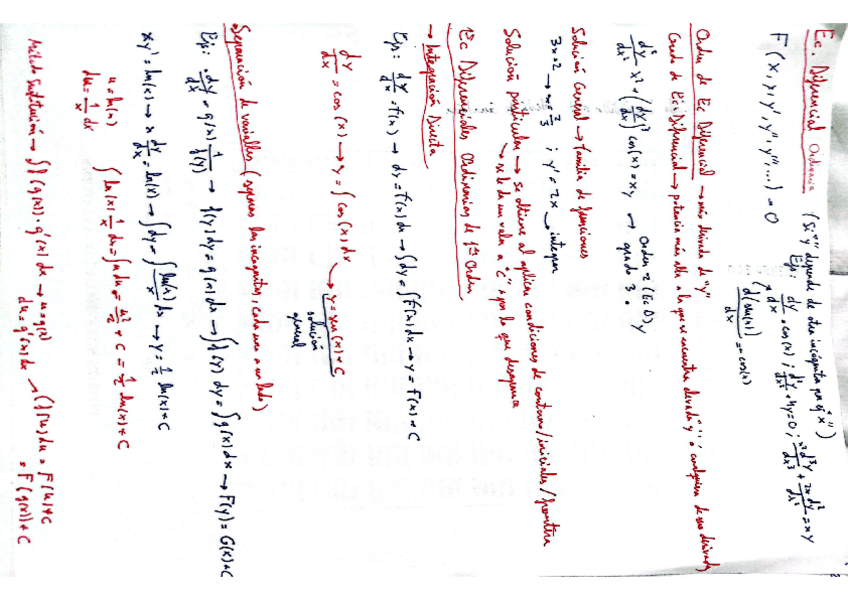 Ec. Diferencial Ordinaria (Si "y" depende de otra incógnita por ej "x")
Ejs: dy/dx = cos(x) ; d²y/dx² + 4y = 0 ; x² d³y/dx³ + 2x d²y/dx² = xy
F(x, y, y', y'', y''', ...) = 0
d(sen(x))/dx = cos(x)
Orden de Ec Diferencial → más derivada de "y"
Grado de Ec Diferencial → potencia más alta a la que se encuentra elevada "y" o cualquiera de sus derivadas
d²y/dx² x² + (dy/dx)³ cos(x) = xy → Orden 2 (E.D) y grado 3
Solución General → familia de funciones
3x = 2 → x = 2/3 ; y' = 2x → integrar
Solución particular → se obtiene al aplicar condiciones de contorno/iniciales/frontera
→ se le da un valor a "c" por lo que desaparece
Ec Diferenciales Ordinarias de 1er Orden
→ Integración Directa
Ejs: dy/dx = f(x) → dy = f(x) dx → ∫dy = ∫f(x) dx → y = F(x) + C
dy/dx = cos(x) → y = ∫cos(x) dx → y = sen(x) + C
solución
general
Separación de variables (separas las incógnitas, cada una a un lado)
Ejs: dy/dx = g(x) 1/f(y) → f(y) dy = g(x) dx → ∫f(y) dy = ∫g(x) dx → F(y) = G(x) + C
xy' = ln(x) → x dy/dx = ln(x) → ∫dy = ∫ln(x)/x dx → y = 1/2 ln(x) + C
u = ln(x) ∫ln(x) 1/x dx = ∫u du = u²/2 + C = 1/2 ln(x) + C
du = 1/x dx
Método Sustitución → ∫f(g(x)) · g'(x) dx → u = g(x) → ∫f(u) du = F(u) + C
du = g'(x) dx = F(g(x)) + C